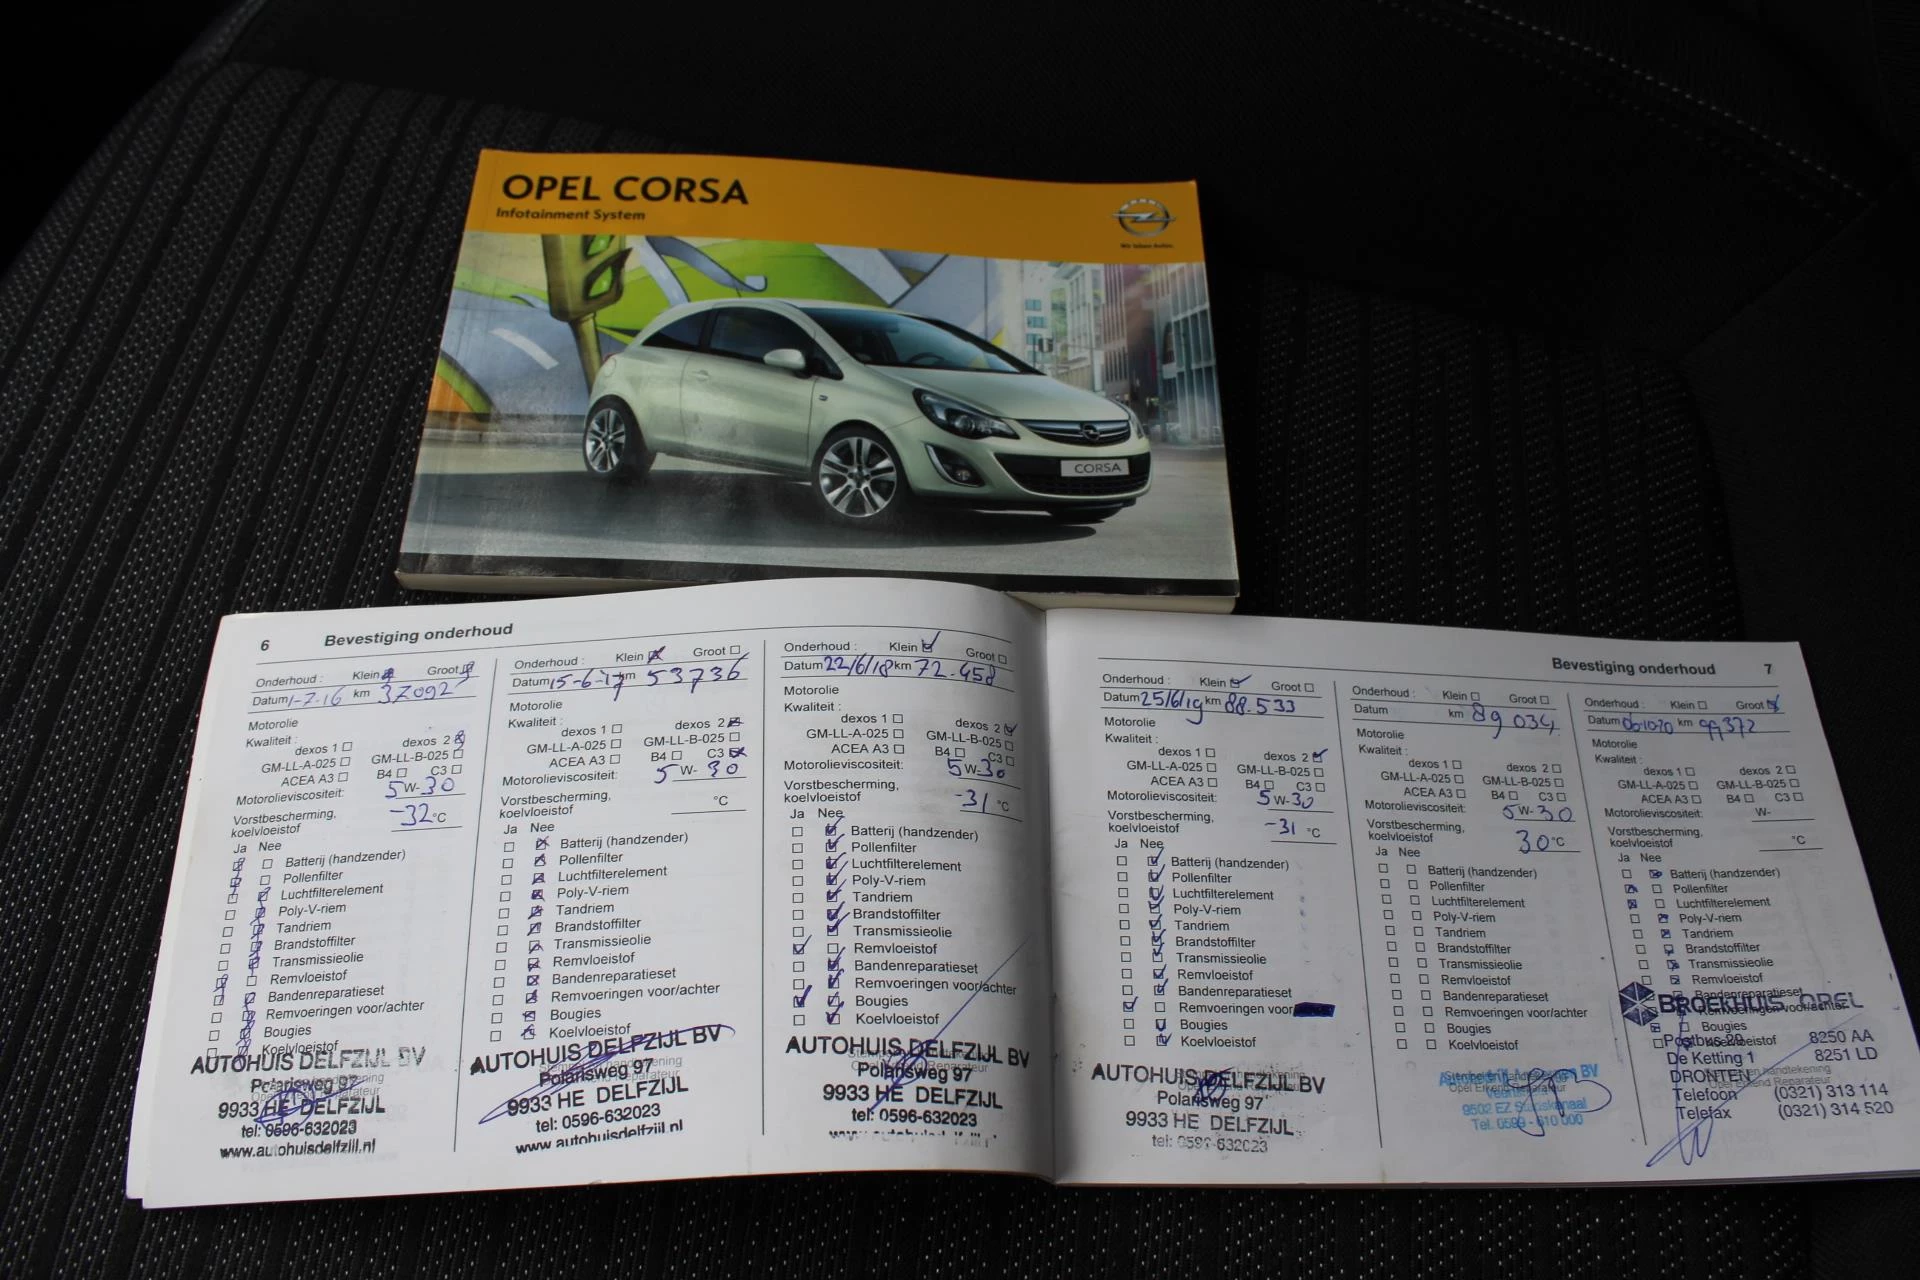 OPEL CORSA
Infotainment System
Wir leben Autos.
CORSA
6 Bevestiging onderhoud
Onderhoud : Klein Groot
Datum 1-7-16 km 37092
Motorolie
Kwaliteit :
dexos 1 dexos 2
GM-LL-A-025 GM-LL-B-025
ACEA A3 B4 C3
Motorolieviscositeit: 5 W-30
Vorstbescherming,
koelvloeistof -32 °C
Ja Nee
Batterij (handzender)
Pollenfilter
Luchtfilterelement
Poly-V-riem
Tandriem
Brandstoffilter
Transmissieolie
Remvloeistof
Bandenreparatieset
Remvoeringen voor/achter
Bougies
Koelvloeistof
AUTOHUIS DELFZIJL BV
Polarisweg 97
9933 HE DELFZIJL
tel: 0596-632023
www.autohuisdelfzijl.nl
Onderhoud : Klein Groot
Datum 15-6-17 km 53736
Motorolie
Kwaliteit :
dexos 1 dexos 2
GM-LL-A-025 GM-LL-B-025
ACEA A3 B4 C3
Motorolieviscositeit: 5 W-30
Vorstbescherming,
koelvloeistof °C
Ja Nee
Batterij (handzender)
Pollenfilter
Luchtfilterelement
Poly-V-riem
Tandriem
Brandstoffilter
Transmissieolie
Remvloeistof
Bandenreparatieset
Remvoeringen voor/achter
Bougies
Koelvloeistof
AUTOHUIS DELFZIJL BV
Polarisweg 97
9933 HE DELFZIJL
tel: 0596-632023
www.autohuisdelfzijl.nl
Onderhoud : Klein Groot
Datum 22/6/18 km 72.458
Motorolie
Kwaliteit :
dexos 1 dexos 2
GM-LL-A-025 GM-LL-B-025
ACEA A3 B4 C3
Motorolieviscositeit: 5 W-30
Vorstbescherming,
koelvloeistof -31 °C
Ja Nee
Batterij (handzender)
Pollenfilter
Luchtfilterelement
Poly-V-riem
Tandriem
Brandstoffilter
Transmissieolie
Remvloeistof
Bandenreparatieset
Remvoeringen voor/achter
Bougies
Koelvloeistof
AUTOHUIS DELFZIJL BV
Polarisweg 97
9933 HE DELFZIJL
tel: 0596-632023
Bevestiging onderhoud 7
Onderhoud : Klein Groot
Datum 25/6/19 km 88.533
Motorolie
Kwaliteit :
dexos 1 dexos 2
GM-LL-A-025 GM-LL-B-025
ACEA A3 B4 C3
Motorolieviscositeit: 5 W-30
Vorstbescherming,
koelvloeistof -31 °C
Ja Nee
Batterij (handzender)
Pollenfilter
Luchtfilterelement
Poly-V-riem
Tandriem
Brandstoffilter
Transmissieolie
Remvloeistof
Bandenreparatieset
Remvoeringen voor
Bougies
Koelvloeistof
AUTOHUIS DELFZIJL BV
Polarisweg 97
9933 HE DELFZIJL
tel: 0596-632023
Onderhoud : Klein Groot
Datum km 89 034
Motorolie
Kwaliteit :
dexos 1 dexos 2
GM-LL-A-025 GM-LL-B-025
ACEA A3 B4 C3
Motorolieviscositeit: 5 W-30
Vorstbescherming,
koelvloeistof 30 °C
Ja Nee
Batterij (handzender)
Pollenfilter
Luchtfilterelement
Poly-V-riem
Tandriem
Brandstoffilter
Transmissieolie
Remvloeistof
Bandenreparatieset
Remvoeringen voor/achter
Bougies
Koelvloeistof
BV
9502 EZ Stadskanaal
Tel. 0599 - 610 000
Onderhoud : Klein Groot
Datum 06-10-20 km 99372
Motorolie
Kwaliteit :
dexos 1 dexos 2
GM-LL-A-025 GM-LL-B-025
ACEA A3 B4 C3
Motorolieviscositeit: W-
Vorstbescherming,
koelvloeistof °C
Ja Nee
Batterij (handzender)
Pollenfilter
Luchtfilterelement
Poly-V-riem
Tandriem
Brandstoffilter
Transmissieolie
Remvloeistof
Bandenreparatieset
Remvoeringen voor/achter
Bougies
Koelvloeistof
BROEKHUIS OPEL
Postbus 8250 AA
De Ketting 1 8251 LD
DRONTEN
Telefoon (0321) 313 114
Telefax (0321) 314 520